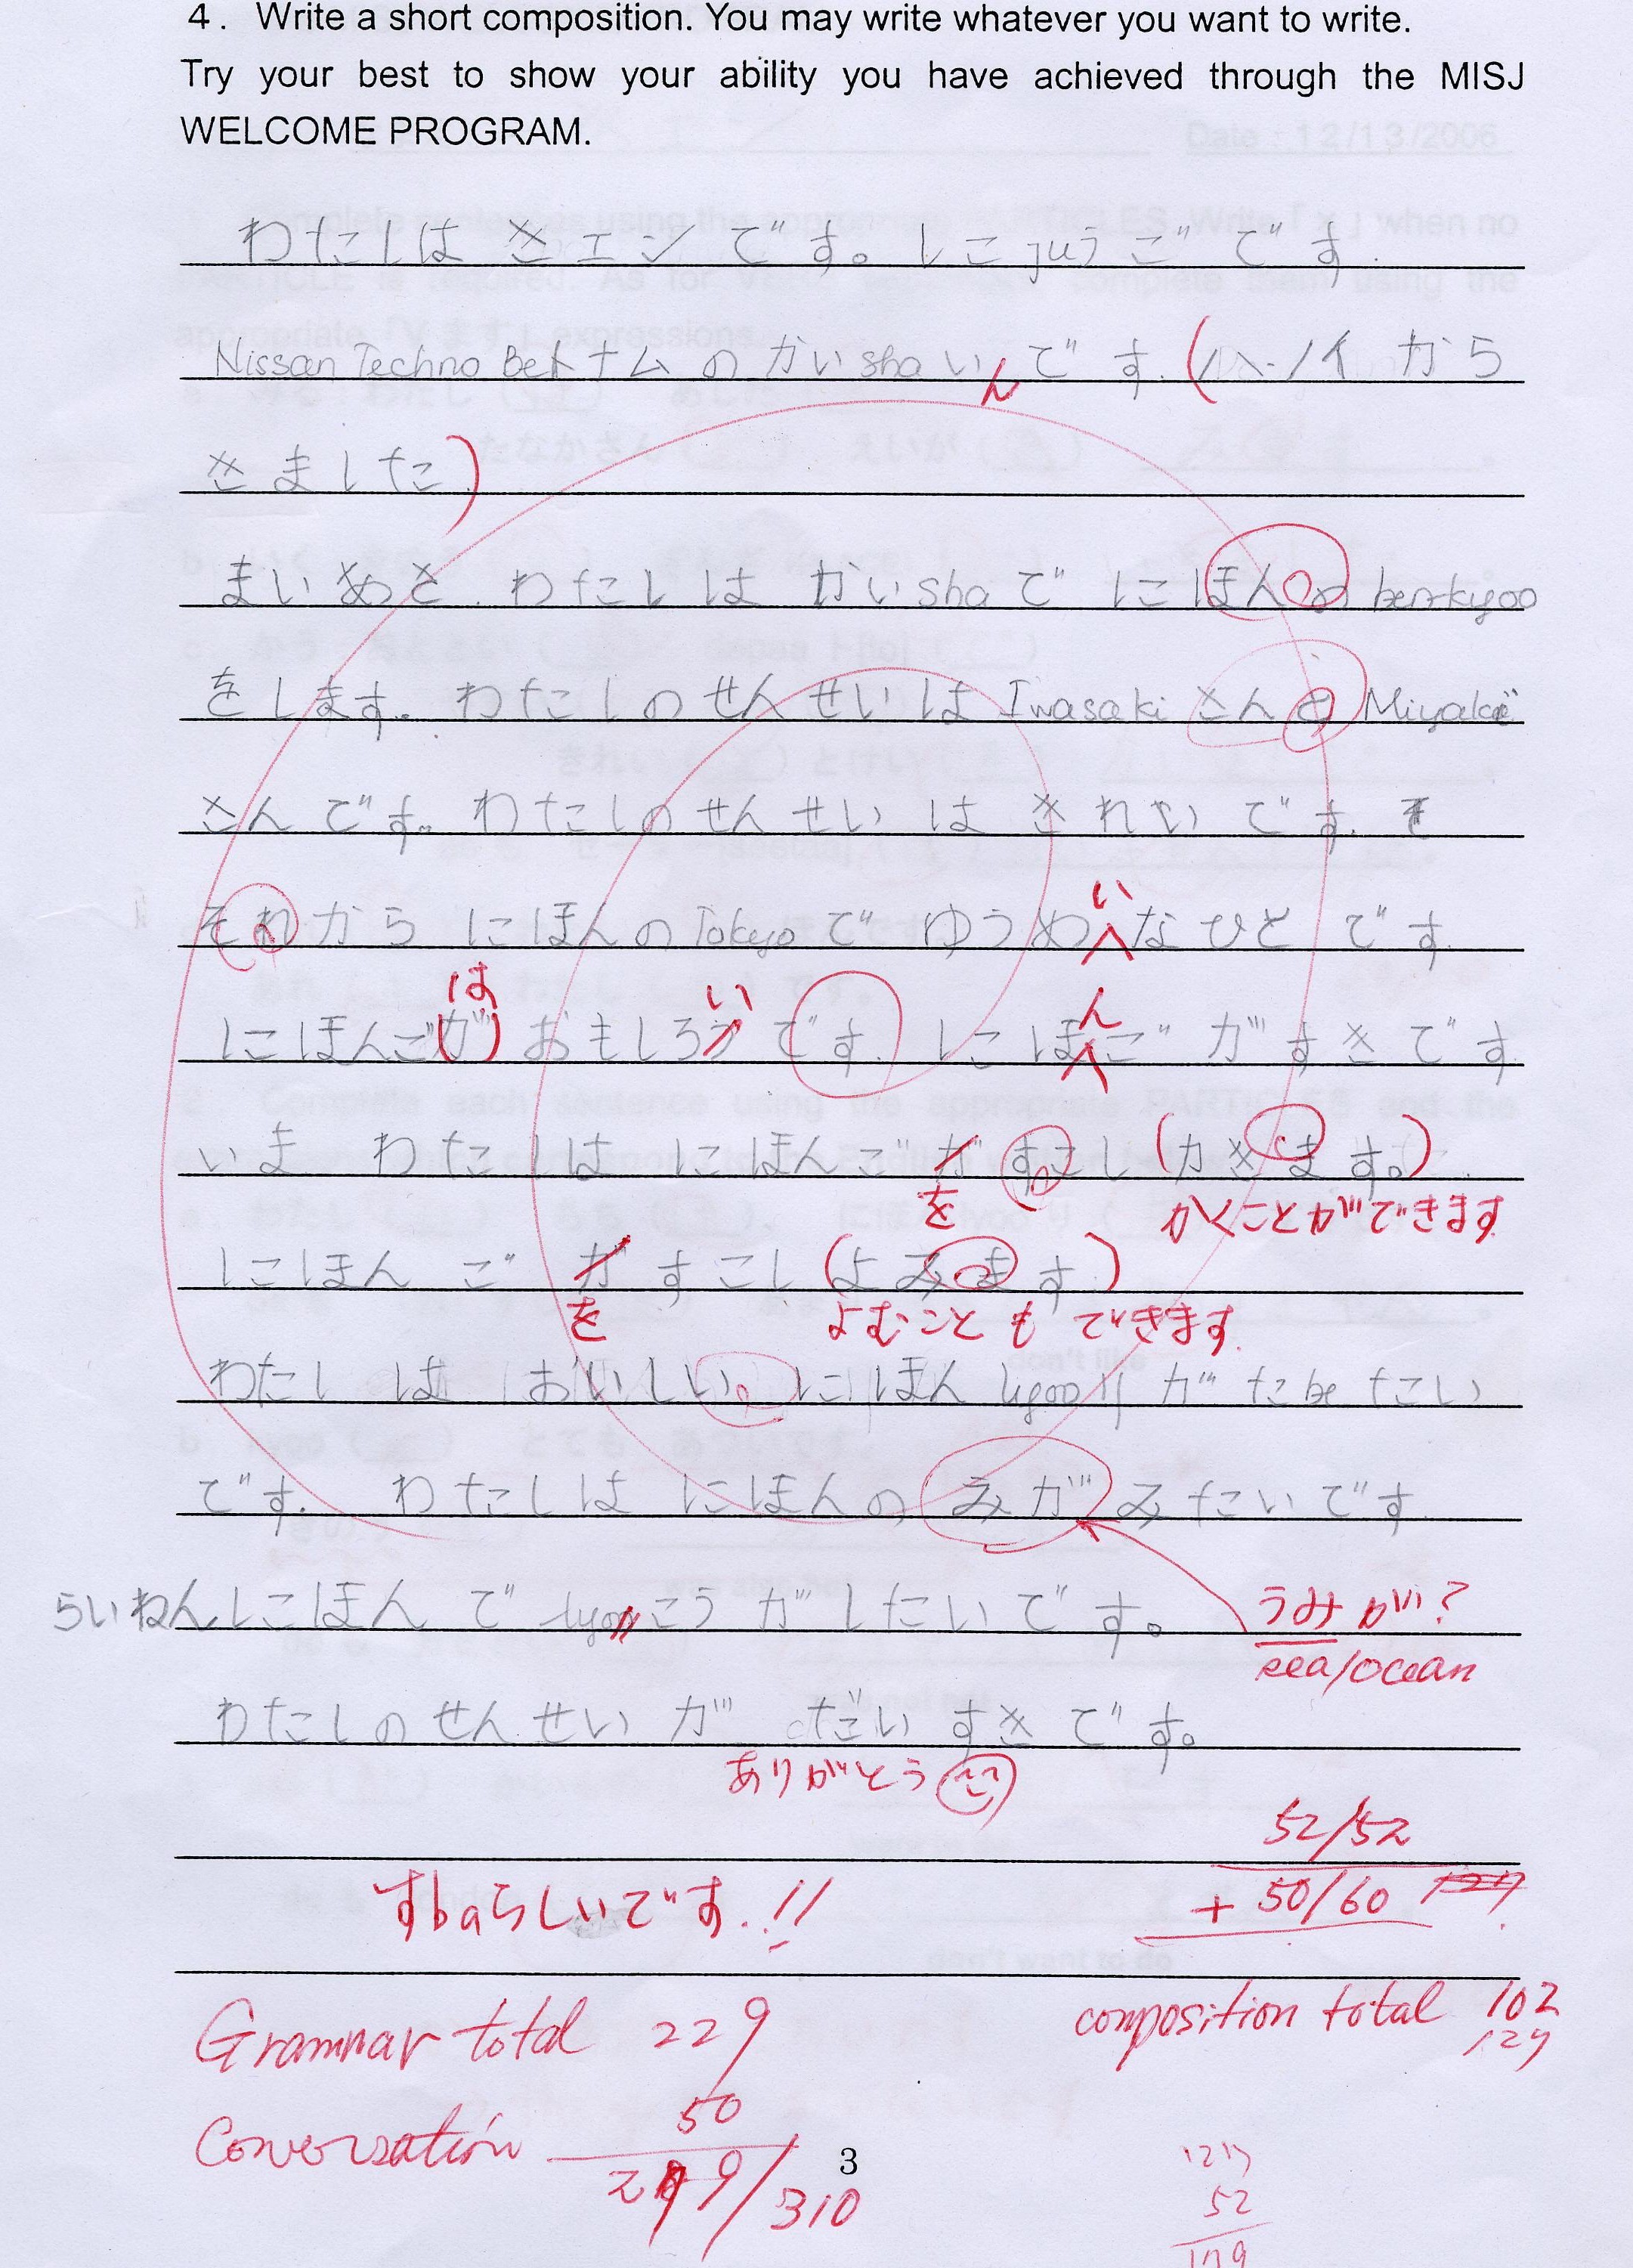 4. Write a short composition. You may write whatever you want to write.
Try your best to show your ability you have achieved through the MISJ
WELCOME PROGRAM.
Date : 12/13/2006
わたしは きエン です。 にこjuうご です.
Nissan Techno Beトナム の かいshaい です. (ハーノイ から
ん
きました)
まいあさ. わたしは かいshaで にほんの benkyoo
をします。 わたしの せんせいは Iwasaki さんと Miyake
さん です。 わたしの せんせい は きれい です.
それから にほんの Tokyo で ゆうめなひと です.
い
にほんごが おもしろう です. にほご が すき です.
は い ん
いま わたしは にほんご が すこし (かきます。)
を かくことができます
にほんご が すこし (よみます.)
を よむことも できます.
わたし は おいしい にほん lyooり が たbe たい
です. わたしは にほんの みが みたいです.
らいねん にほん で lyooこう が したい です。
うみ が?
sea/ocean
わたしの せんせい が だい すき です。
ありがとう
52/52
すbaらしいです.!!
+ 50/60
Grammar total 229
composition total 102
50
Conversation
3
310
52